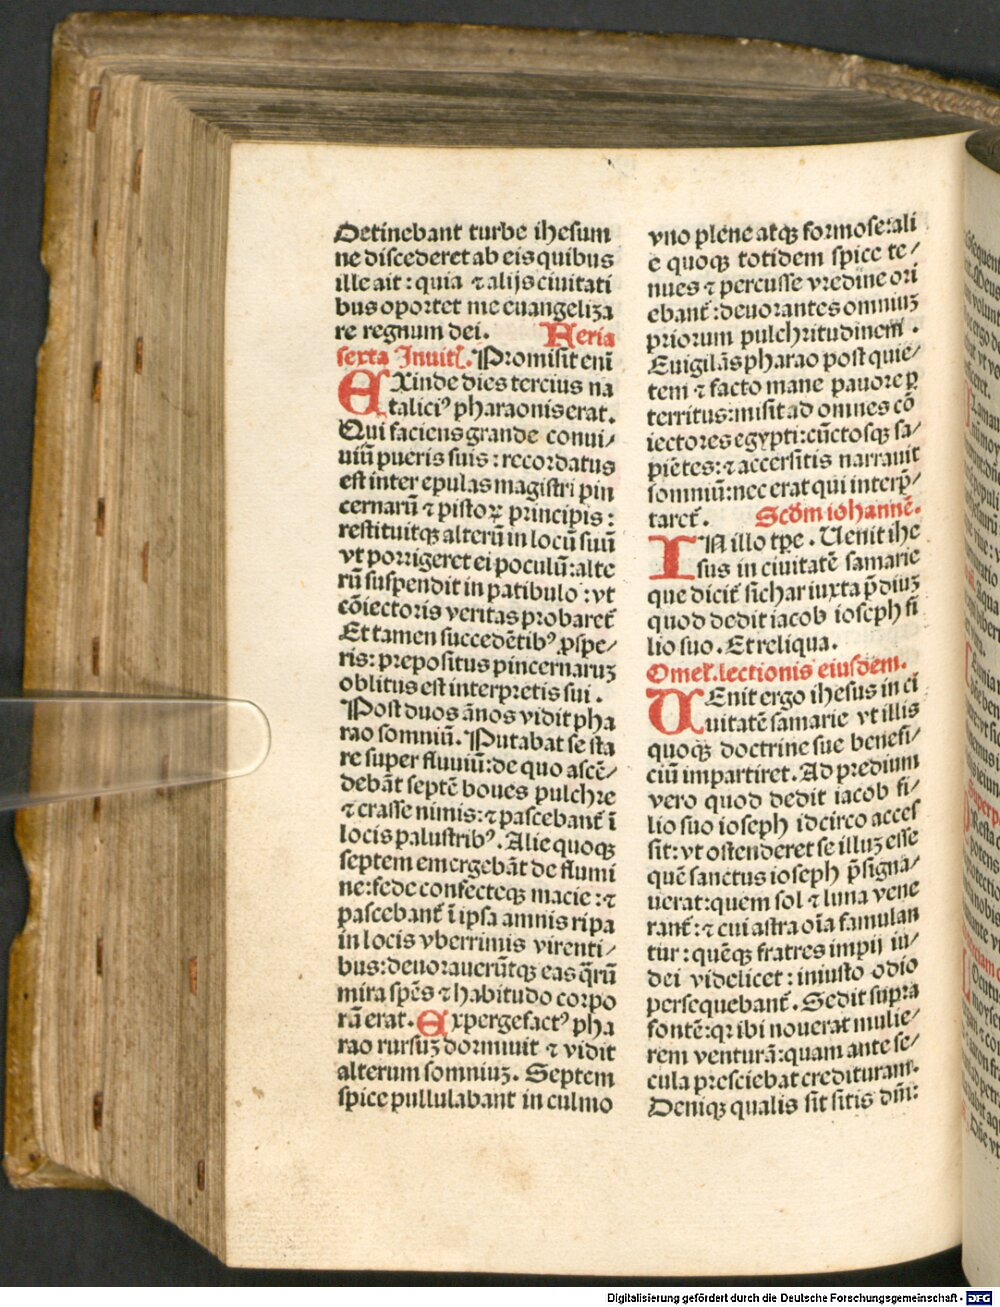 Detinebant turbe ihesum
ne discederet ab eis quibus
ille ait : quia ⁊ alijs ciuitati
bus oportet me euangeliza
re regnum dei. Feria
sexta Inuitĺ. Promisit eni̅
EXinde dies tercius na
taliciꝰ pharaonis erat.
Qui faciens grande conui/
uiu̅ pueris suis : recordatus
est inter epulas magistri pin
cernaru̅ ⁊ pistoꝝ principis :
restituitqꝫ alteru̅ in locu̅ suu̅
vt porrigeret ei poculu̅: alte
ru̅ suspendit in patibulo : vt
co̅iectoris veritas probaret̅
Et tamen succede̅tibꝰ ꝓspe/
ris: prepositus pincernaruꝫ
oblitus est interpretis sui .
Post duos a̅nos vidit pha
rao somniu̅. Putabat se sta
re super fluuiu̅: de quo asce̅/
deba̅t septe̅ boues pulchre
⁊ crasse nimis: ⁊ pascebant̅ i̅
locis palustribꝰ. Alie quoqꝫ
septem emergeba̅t de flumi
ne: fede confecteqꝫ macie : ⁊
pascebant̅ i̅ ipsa amnis ripa
in locis vberrimis virenti/
bus: deuoraueru̅tqꝫ eas q̅ru̅
mira spe̅s ⁊ habitudo corpo
ra̅ erat. Expergefactꝰ pha
rao rursuꝫ dormiuit ⁊ vidit
alterum somniuꝫ. Septem
spice pullulabant in culmo
vno plene atqꝫ formose: ali
e quoqꝫ totidem spice te/
nues ⁊ percusse vredine ori
ebant̅: deuorantes omniuꝫ
priorum pulchritudinem .
Euigila̅s pharao post quie/
tem ⁊ facto mane pauore ꝑ
territus: misit ad omnes co̅
iectores egypti: cu̅ctosqꝫ sa/
pie̅tes: ⁊ accersitis narrauit
somniu̅: nec erat qui interp̅/
taret̅. Scd̅m iohanne̅.
IN illo tp̅e . Uenit ihe
sus in ciuitate̅ samarie
que dicit̅ sichar iuxta p̅diuꝫ
quod dedit iacob ioseph fi
lio suo . Et reliqua.
Omeĺ. lectionis eiusdem.
UEnit ergo ihesus in ci
uitate̅ samarie vt illis
quoqꝫ doctrine sue benefi/
ciu̅ impartiret. Ad predium
vero quod dedit iacob fi/
lio suo ioseph idcirco acces
sit: vt ostenderet se illuꝫ esse
que̅ sanctus ioseph p̅signa/
uerat: quem sol ⁊ luna vene
rant̅: ⁊ cui astra oi̅a famulan
tur : que̅qꝫ fratres impij iu/
dei videlicet : iniusto odio
persequebant̅. Sedit supra
fonte̅: qr ibi nouerat mulie/
rem ventura̅: quam ante se/
cula presciebat credituram.
Deniqꝫ qualis sit sitis dn̅i:
Digitalisierung gefördert durch die Deutsche Forschungsgemeinschaft - DFG